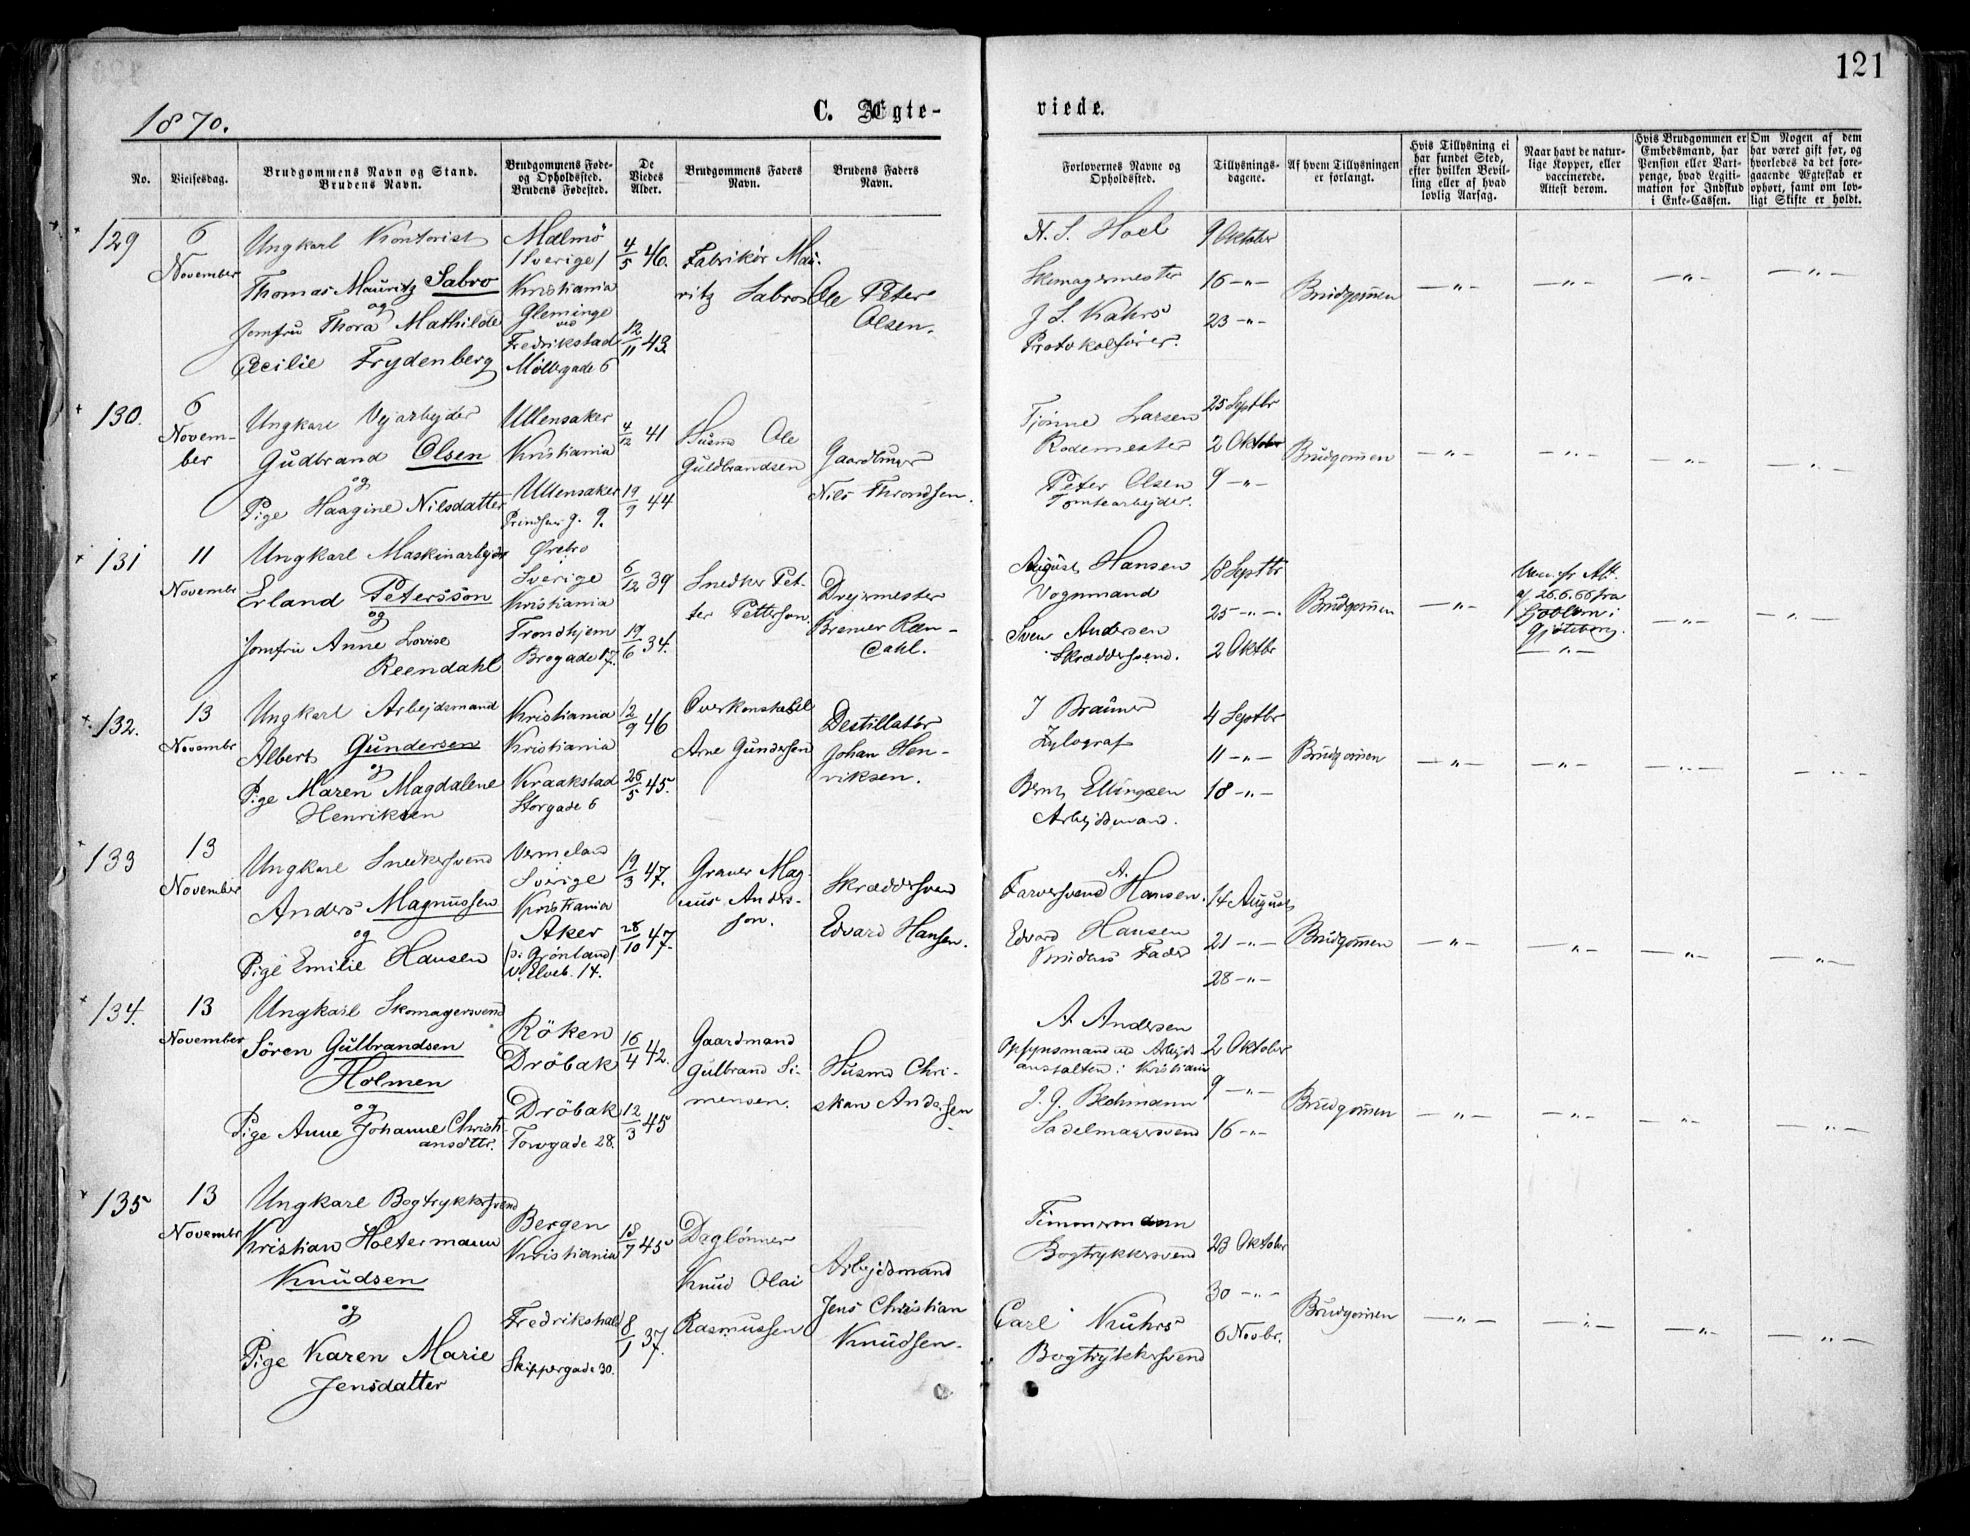 121
1870.
C. Ægte-
viede.
No.
Vielsesdag.
Brudgommens Navn og Stand.
Brudens Navn.
Brudgommens Føde-
og Opholdssted.
Brudens Fødested.
De
Viedes
Alder.
Brudgommens Faders
Navn.
Brudens Faders
Navn.
Forlovernes Navne og
Opholdssted.
Tillysnings-
dagene.
Af hvem Tillysningen
er forlangt.
Hvis Tillysning ei
har fundet Sted,
efter hvilken Bevil-
ling eller af hvad
lovlig Aarsag.
Naar havt de natur-
lige Kopper, eller
vaccinerede.
Attest derom.
Hvis Brudgommen er
Embedsmand, har
Pension eller Vart-
penge, hvad Legiti-
mation for Indskud
i Enke-Cassen.
Om Nogen af dem
har været gift før, og
hvorledes da det fore-
gaaende Ægteskab er
ophørt, samt om lov-
ligt Skifte er holdt.
129
6
November
Ungkarl Kontorist
Thomas Mauritz Sabro
og
Jomfru Thora Mathilde
Cecilie Frydenberg
Malmö
/Sverige/
Kristiania
Gleminge
ved
Fredrikstad
Möllergade 6
4/5 46.
12/11 43.
Fabrikör Mau-
ritz Sabro
Ole Peter
Olsen.
N. S. Hoel
Skomagermester
J. S. Kahrs
Protokolförer.
9 Oktober
16 -"-
23 -"-
Brudgommen
-"- -"- -"- -"-
130.
6
Novem-
ber
Ungkarl Vejarbejder
Gudbrand Olsen
og
Pige Haagine Nilsdatter
Ullensaker
Kristiania
Ullensaker
Prindsens g. 9.
4/12 41
19/9 44
Husmd Ole
Guldbrandsen
Gaardbruger
Nils Throndsen.
Tjönne Larsen
Rodemester
Peter Olsen
Tomtearbejder.
25 Septbr
2 Oktobr
9 -"-
Brudgommen
-"- -"- -"- -"-
131
11
Novembr
Ungkarl Maskinarbejder
Erland Petersson
og
Jomfru Anne Lovise
Reendahl
Örebro
Sverige
Kristiania
Trondhjem
Brogade 17.
6/12 39
19/6 34.
Snedker Pet-
ter Petterson
Drejermester
Bremer Reen-
dahl.
August Hansen
Vognmand
Sven Andersen
Skræddersvend.
18 Septbr
25 -"-
2 Oktbr
Brudgommen
-"-
af 26.6.66 fra
i
-"-
-"- -"-
132.
13
Novembr
Ungkarl Arbejdsmand
Albert Gundersen
og
Pige Maren Magdalene
Henriksen
Kristiania
Kristiania
Kraakstad
Storgade 6
12/9 46
26/5 45.
Overkonstabel
Arne Gundersen
Destillatör
Johan Hen-
riksen.
J Brauner
Xylograf
Bernt Ellingsen
Arbejdsmand.
4 Septbr
11 -"-
18 -"-
Brudgommen
-"- -"- -"- -"-
133
13
November
Ungkarl Snedkersvend
Anders Magnussen
og
Pige Emilie Hansen
Vermeland
Sverige
Kristiania
Aker
/på Grönland/
v. Elveb. 14.
19/3 47.
28/10 47.
Graver Mag-
nus Anders-
son.
Skræddersvend
Edvard Hansen.
Farversvend A. Hansen.
Edvard Hansen
Brudens Fader
14 August
21 -"-
28 -"-
Brudgommen
-"- -"- -"- -"-
134.
13
November
Ungkarl Skomagersvend
Sören Gulbrandsen
Holmen
og
Pige Anne Johanne Christi-
ansdttr.
Röken
Dröbak
Dröbak
Torvgade 28.
16/4 42.
12/3 45
Gaardmand
Gulbrand Si-
mensen.
Husmd Chri-
stian Andersen
A Andersen
Opsynsmand ved Arbejds-
anstalten i Kristiania
J. G. Bechmann
Sadelmagersvend
2 Oktober
9 -"-
16 -"-
Brudgommen
-"- -"- -"- -"-
135
13
Novembr
Ungkarl Bogtrykkersvend
Kristian Holtermann
Knudsen
og
Pige Karen Marie
Jensdatter
Bergen
Kristiania
Fredrikshald
Skippergade 30.
18/7 45
8/1 37.
Daglönner
Knud Olai
Rasmussen
Arbejdsmand
Jens Christian
Knudsen.
Timmermann
Bogtrykkersvend
Carl Kuhrs
Bogtrykkersvend
23 Oktober
30 -"-
6 Novbr.
Brudgommen
-"- -"- -"- -"-